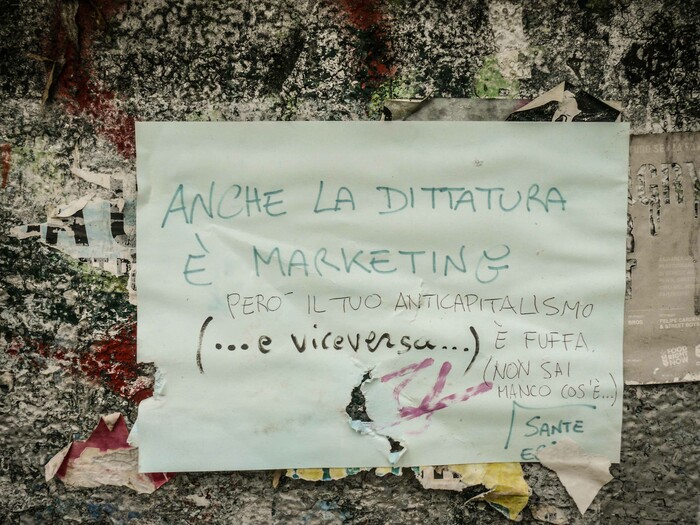 ANCHE LA DITTATURA
È MARKETING
PERO' IL TUO ANTICAPITALISMO
È FUFFA.
(... e viceversa...)
(NON SAI
MANCO COS'È...)
SANTE